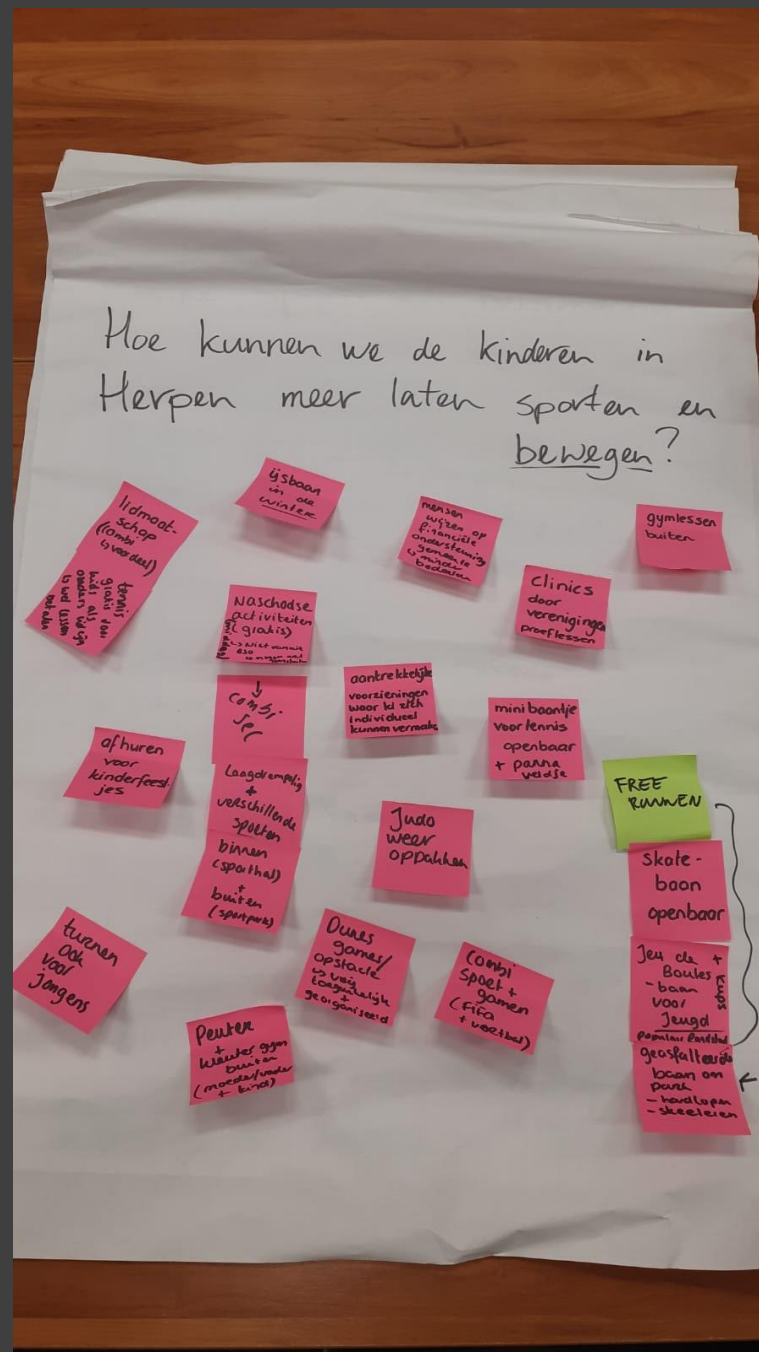 Hoe kunnen we de kinderen in
Herpen meer laten sporten en
bewegen?
lidmaat-
schap
(combi
↳ voordeel)
tennis
gratis voor
kids als
ouders lid zijn
↳ wel lessen
betalen
ijsbaan
in de
winter
mensen
wijzen op
financiële
ondersteuning
gemeente
↳ minder
bedeelden
gymlessen
buiten
Naschoolse
activiteiten
(gratis)
↳ niet vanuit
BSO
clinics
door
verenigingen
proeflessen
↓
combi
aantrekkelijke
voorzieningen
waar ki zich
individueel
kunnen vermaken
mini baantje
voor tennis
openbaar
+ panna
veldje
afhuren
voor
kinderfeest
jes
Laagdrempelig
+
verschillende
sporten
binnen
(sporthal)
+
buiten
(sportpark)
Judo
weer
oppakken
FREE
RUNNEN
skate-
baan
openbaar
Jeu de
Boules
-baan
voor
Jeugd
+ kubs
populair
geasfalteerde
baan om
park
- hardlopen
- skeeleren
turnen
ook
voor
jongens
Peuter
+
kleuter gym
buiten
(moeder/vader
+ kind)
Dunes
games/
opstacle
↳ vrij
toegankelijk
+
georganiseerd
Combi
sport +
gamen
(fifa
+ voetbal)